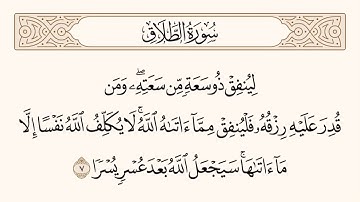 سُورَةُ الطَّلَاقِ
لِيُنفِقْ ذُو سَعَةٍ مِّن سَعَتِهِۦ ۖ وَمَن
قُدِرَ عَلَيْهِ رِزْقُهُۥ فَلْيُنفِقْ مِمَّآ ءَاتَىٰهُ ٱللَّهُ ۚ لَا يُكَلِّفُ ٱللَّهُ نَفْسًا إِلَّا
مَآ ءَاتَىٰهَا ۚ سَيَجْعَلُ ٱللَّهُ بَعْدَ عُسْرٍ يُسْرًا ٧